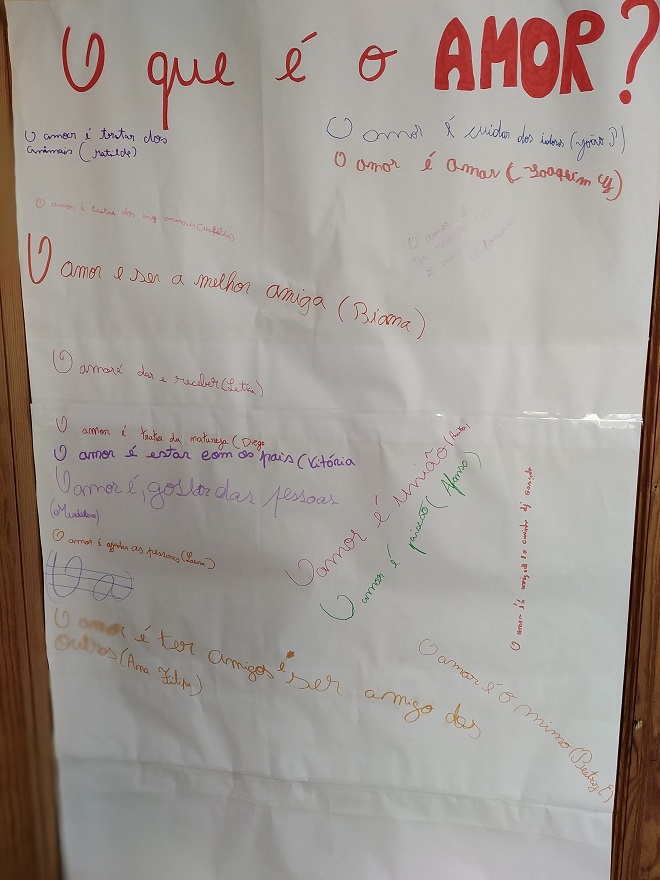 O que é o AMOR?
O amor é tratar dos
animais (Matilde)
O amor é cuidar dos idosos (João P)
O amor é amar (Joaquim G)
O amor é tratar dos
O amor é
O amor e ser a melhor amiga (Biana)
O amor é dar e receber (Letícia)
O amor é trata da natureza (Diego
O amor é estar com os pais (Vitória
O amor é, gostar das pessoas
(Madalena)
O amor é união
O amor é paixão (Afonso)
O amor é
O amor é ajudar as pessoas (Laura)
O a
O amor é ter amigos e ser amigo dos
outros (Ana Filipa)
O amor é o mimo (Beatriz